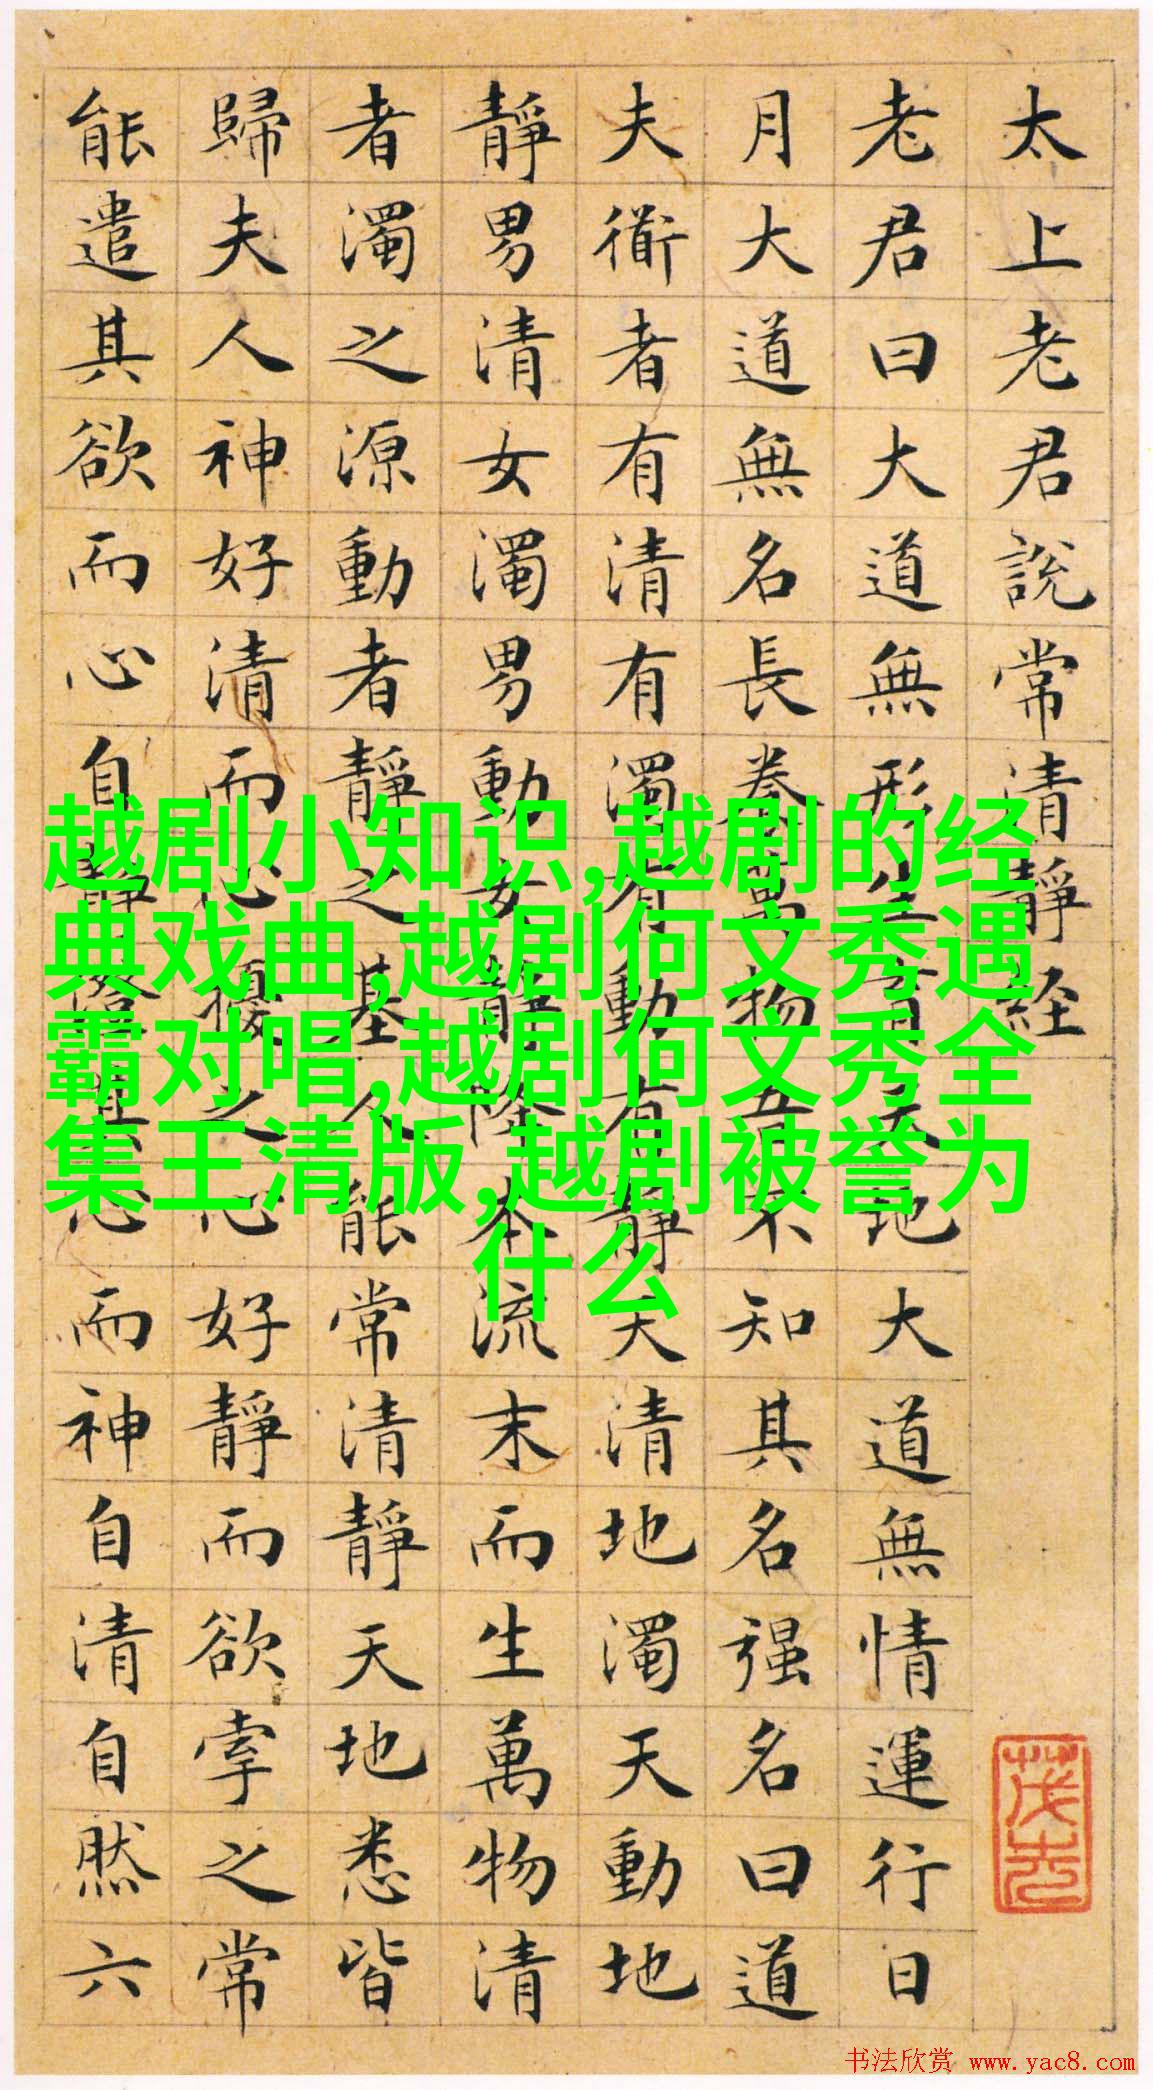 太上老君說常清靜経
老君曰大道無形生育天地大道無情運行日
月大道無名長養萬物吾不知其名强名曰道
夫衜者有清有濁有動有静天清地濁天動地
靜男清女濁男動女靜降本流末而生萬物清
者濁之源動者靜之基人能常清靜天地悉皆
歸夫人神好清而心擾之心好靜而欲牽之常
能遣其欲而心自静澄其心而神自清自然六
越剧小知识,越剧的经
典戏曲,越剧何文秀遇
霸对唱,越剧何文秀全
集王清版,越剧被誉为
什么
书法欣赏 www.yac8.com